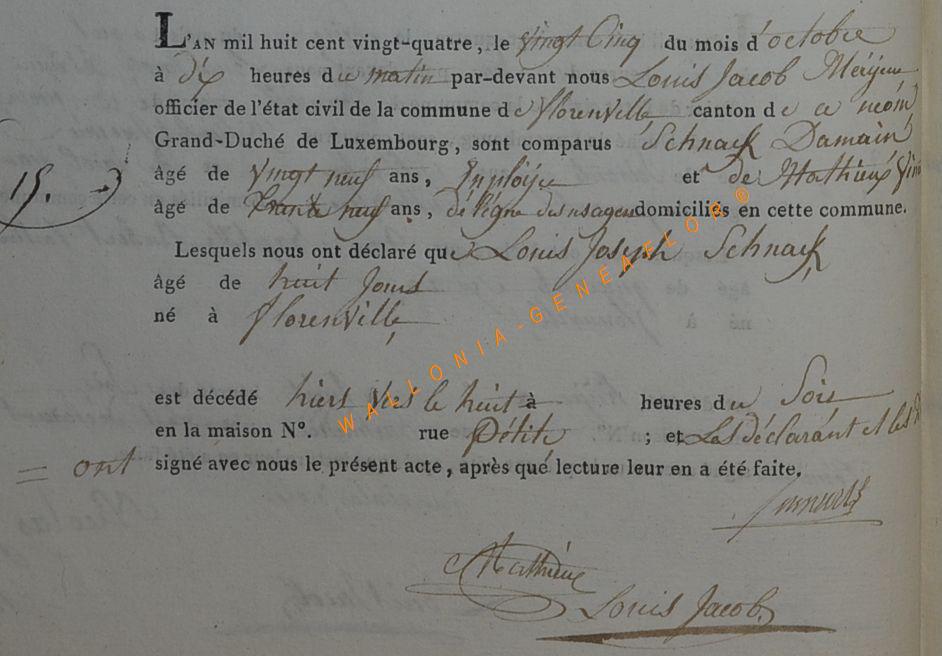 L'AN mil huit cent vingt-quatre, le vingt Cinq du mois d'octobre
à dix heures du matin par-devant nous Louis Jacob
officier de l'état civil de la commune de florenville canton de ce
Grand-Duché de Luxembourg, sont comparus Schnack Damain
15.
âgé de vingt neuf ans, Employe et de Mathieux
âgé de trante neuf ans, délégué des usages domiciliés en cette commune.
Lesquels nous ont déclaré que Louis Joseph Schnack
âgé de huit Jours
né à florenville
est décédé hiers vers le huit à heures du Soir
en la maison N°. rue pétite ; et Les déclarant et les
= ont signé avec nous le présent acte, après que lecture leur en a été faite.
Mathieux
Louis Jacob
WALLONIA-GENEAFLOR®